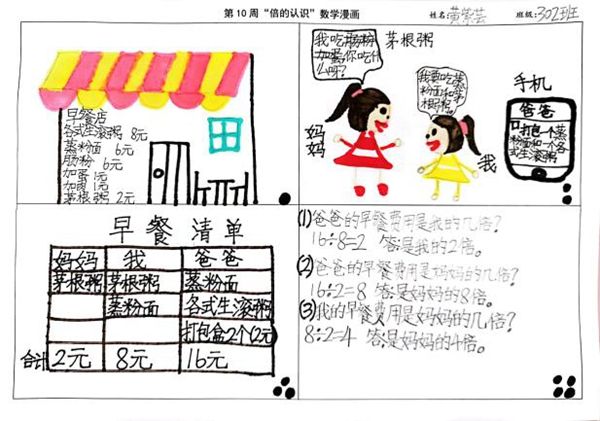 第 10 周 “倍的认识” 数学漫画
姓名:黄紫芸 班级:302班
早餐店
各式生滚粥 8元
蒸粉面 6元
肠粉 6元
加蛋 1元
加肉 1元
茅根粥 2元
我吃肠粉
加蛋,你吃什
么呀?
茅根粥
我要吃蒸
粉面和茅
根粥。
妈妈
我
手机
爸爸
打包一个蒸
粉面和一个各
式生滚粥
早餐清单
妈妈 我 爸爸
茅根粥 茅根粥 蒸粉面
蒸粉面 各式生滚粥
打包盒2个(2元)
合计 2元 8元 16元
(1)爸爸的早餐费用是我的几倍?
16÷8=2 答:是我的2倍。
(2)爸爸的早餐费用是妈妈的几倍?
16÷2=8 答:是妈妈的8倍。
(3)我的早餐费用是妈妈的几倍?
8÷2=4 答:是妈妈的4倍。